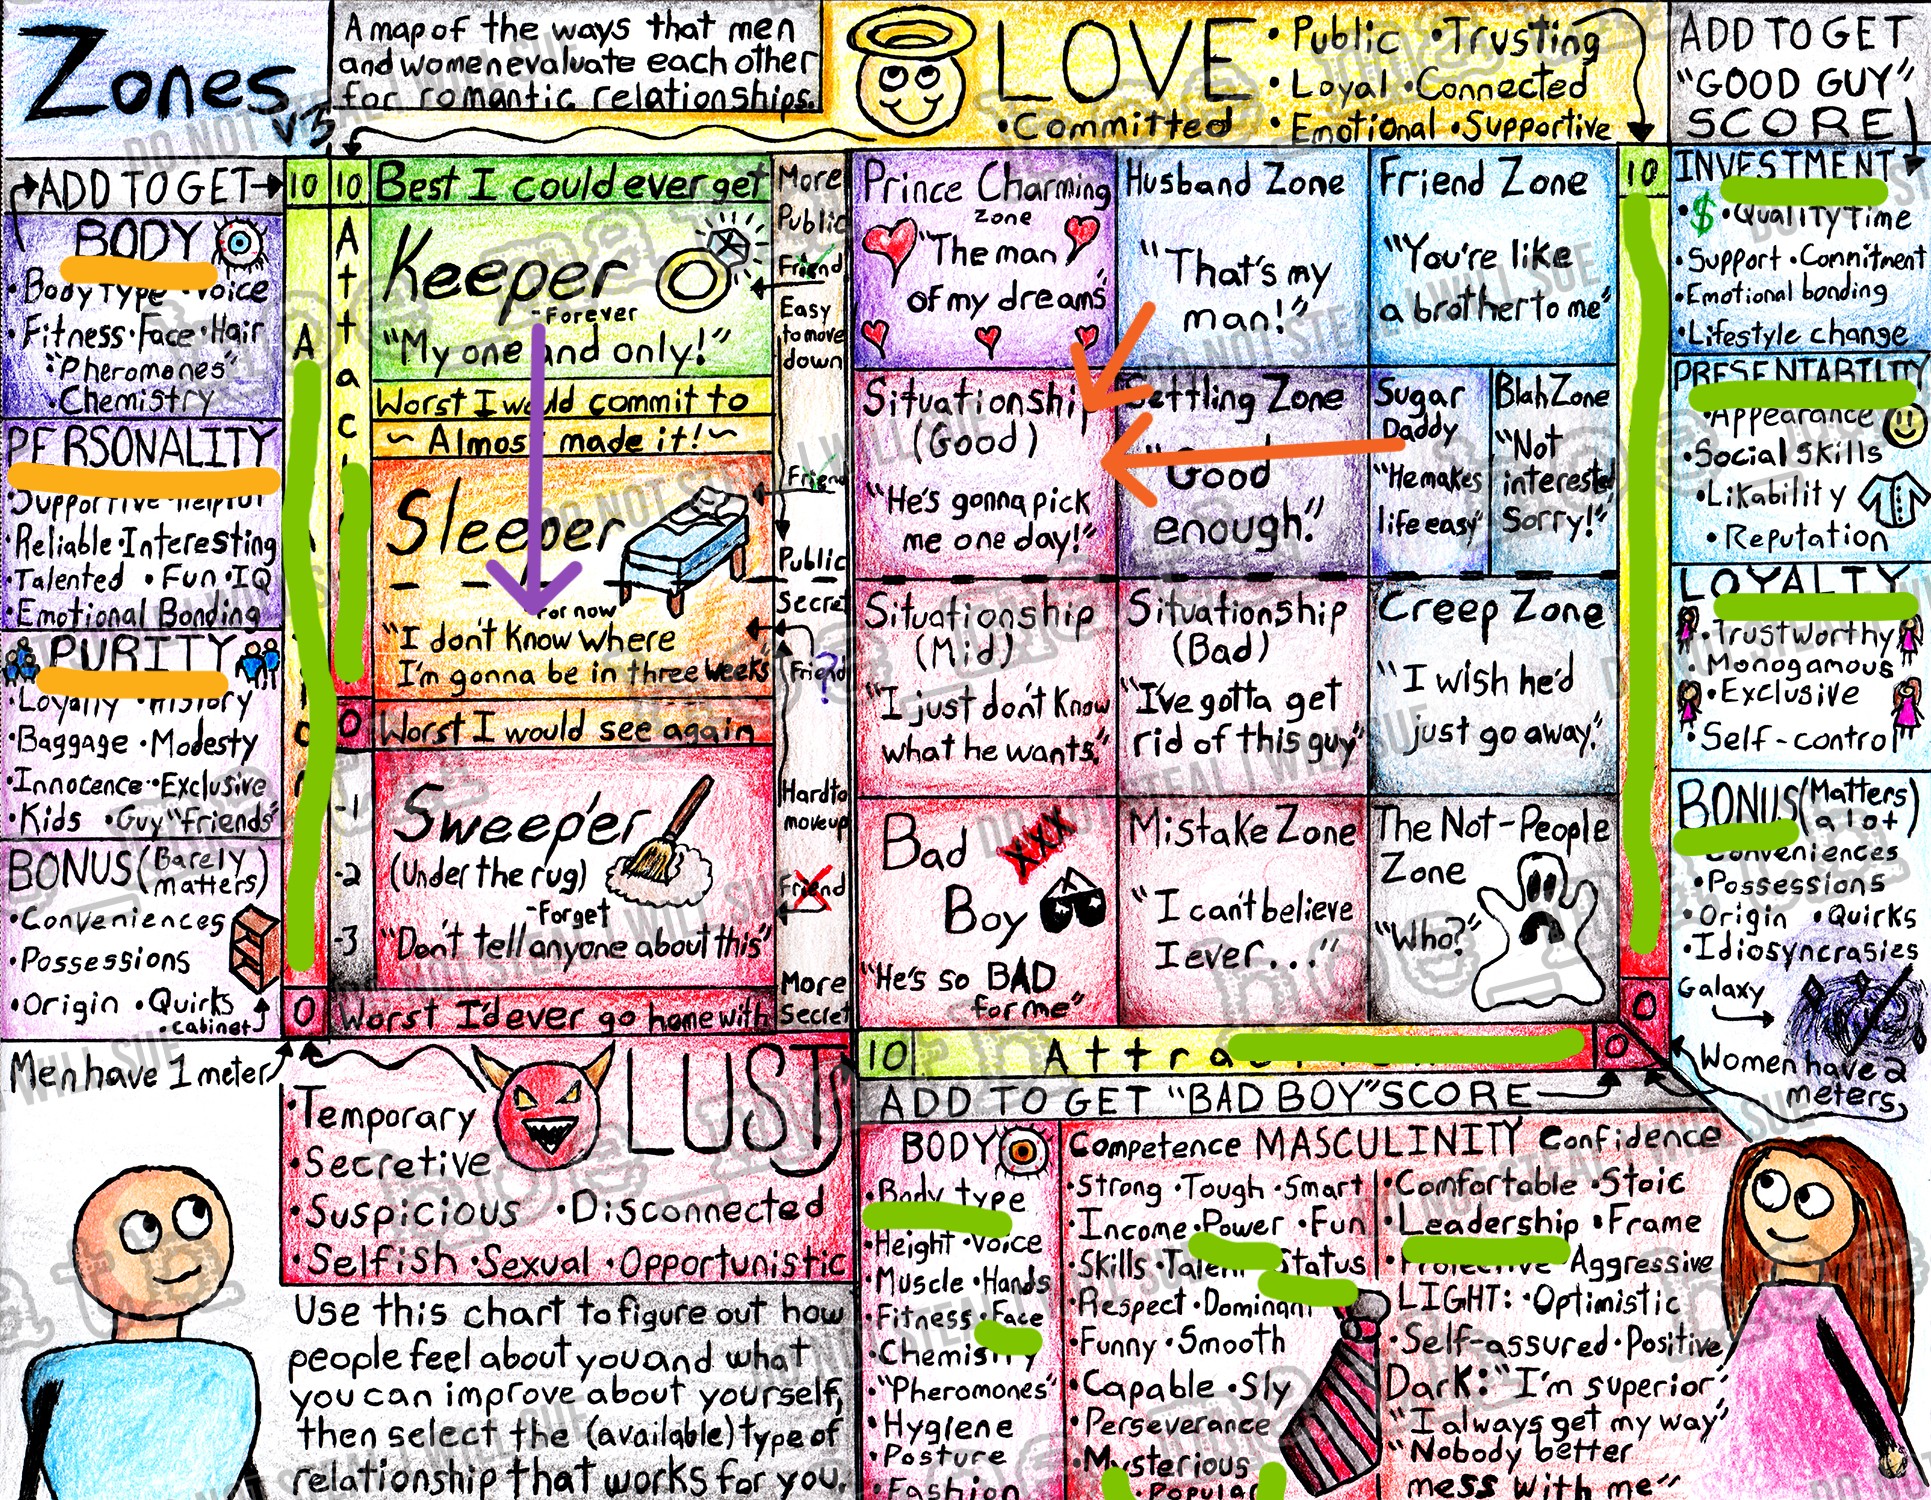 Zones
v3
A map of the ways that men
and women evaluate each other
for romantic relationships.
LOVE
• Public • Trusting
• Loyal • Connected
• Committed • Emotional • Supportive
ADD TO GET
"GOOD GUY"
SCORE
ADD TO GET
10
BODY
• Body Type • Voice
• Fitness • Face • Hair
• "Pheromones"
• Chemistry
PERSONALITY
• Supportive • Helpful
• Reliable • Interesting
• Talented • Fun • IQ
• Emotional Bonding
PURITY
• Loyalty • History
• Baggage • Modesty
• Innocence • Exclusive
• Kids • Guy "friends"
BONUS (Barely
matters)
• Conveniences
• Possessions
• Origin • Quirks
• cabinet
0
Men have 1 meter
10
Attrac
0
-1
-2
-3
Best I could ever get
Keeper
-Forever
"My one and only!"
Worst I would commit to
~ Almost made it! ~
Sleeper
-For now
"I don't know where
I'm gonna be in three weeks"
Worst I would see again
Sweeper
(Under the rug)
-Forget
"Don't tell anyone about this"
Worst I'd ever go home with
More
Public
Friend
Easy
to move
down
Friend
Public
Secret
Friend
?
Hard to
move up
Friend
More
Secret
LUST
• Temporary
• Secretive
• Suspicious • Disconnected
• Selfish • Sexual • Opportunistic
Use this chart to figure out how
people feel about you and what
you can improve about yourself,
then select the (available) type of
relationship that works for you.
Prince Charming
Zone
"The man
of my dreams"
Husband Zone
"That's my
man!"
Friend Zone
"You're like
a brother to me"
Situationship
(Good)
"He's gonna pick
me one day!"
Settling Zone
"Good
enough."
Sugar
Daddy
"He makes
life easy"
Blah Zone
"Not
interested,
Sorry!"
Situationship
(Mid)
"I just don't know
what he wants."
Situationship
(Bad)
"I've gotta get
rid of this guy"
Creep Zone
"I wish he'd
just go away."
Bad
Boy
XXX
"He's so BAD
for me"
Mistake Zone
"I can't believe
I ever..."
The Not-People
Zone
"Who?"
10
0
10
Attra
0
INVESTMENT
• $ • Quality time
• Support • Commitment
• Emotional bonding
• Lifestyle change
PRESENTABILITY
• Appearance
• Social Skills
• Likability
• Reputation
LOYALTY
• Trustworthy
• Monogamous
• Exclusive
• Self-control
BONUS (Matters
a lot)
Conveniences
• Possessions
• Origin • Quirks
• Idiosyncrasies
Galaxy
Women have 2
meters
ADD TO GET "BAD BOY" SCORE
BODY
• Body type
• Height • Voice
• Muscle • Hands
• Fitness • Face
• Chemistry
• "Pheromones"
• Hygiene
• Posture
• Fashion
Competence MASCULINITY Confidence
• Strong • Tough • Smart
• Income • Power • Fun
• Skills • Talent • Status
• Respect • Dominant
• Funny • Smooth
• Capable • Sly
• Perseverance
• Mysterious
• Popular
• Comfortable • Stoic
• Leadership • Frame
• Protective • Aggressive
LIGHT: • Optimistic
• Self-assured • Positive
Dark: "I'm superior"
"I always get my way"
"Nobody better
mess with me"
DO NOT STEAL I WILL SUE